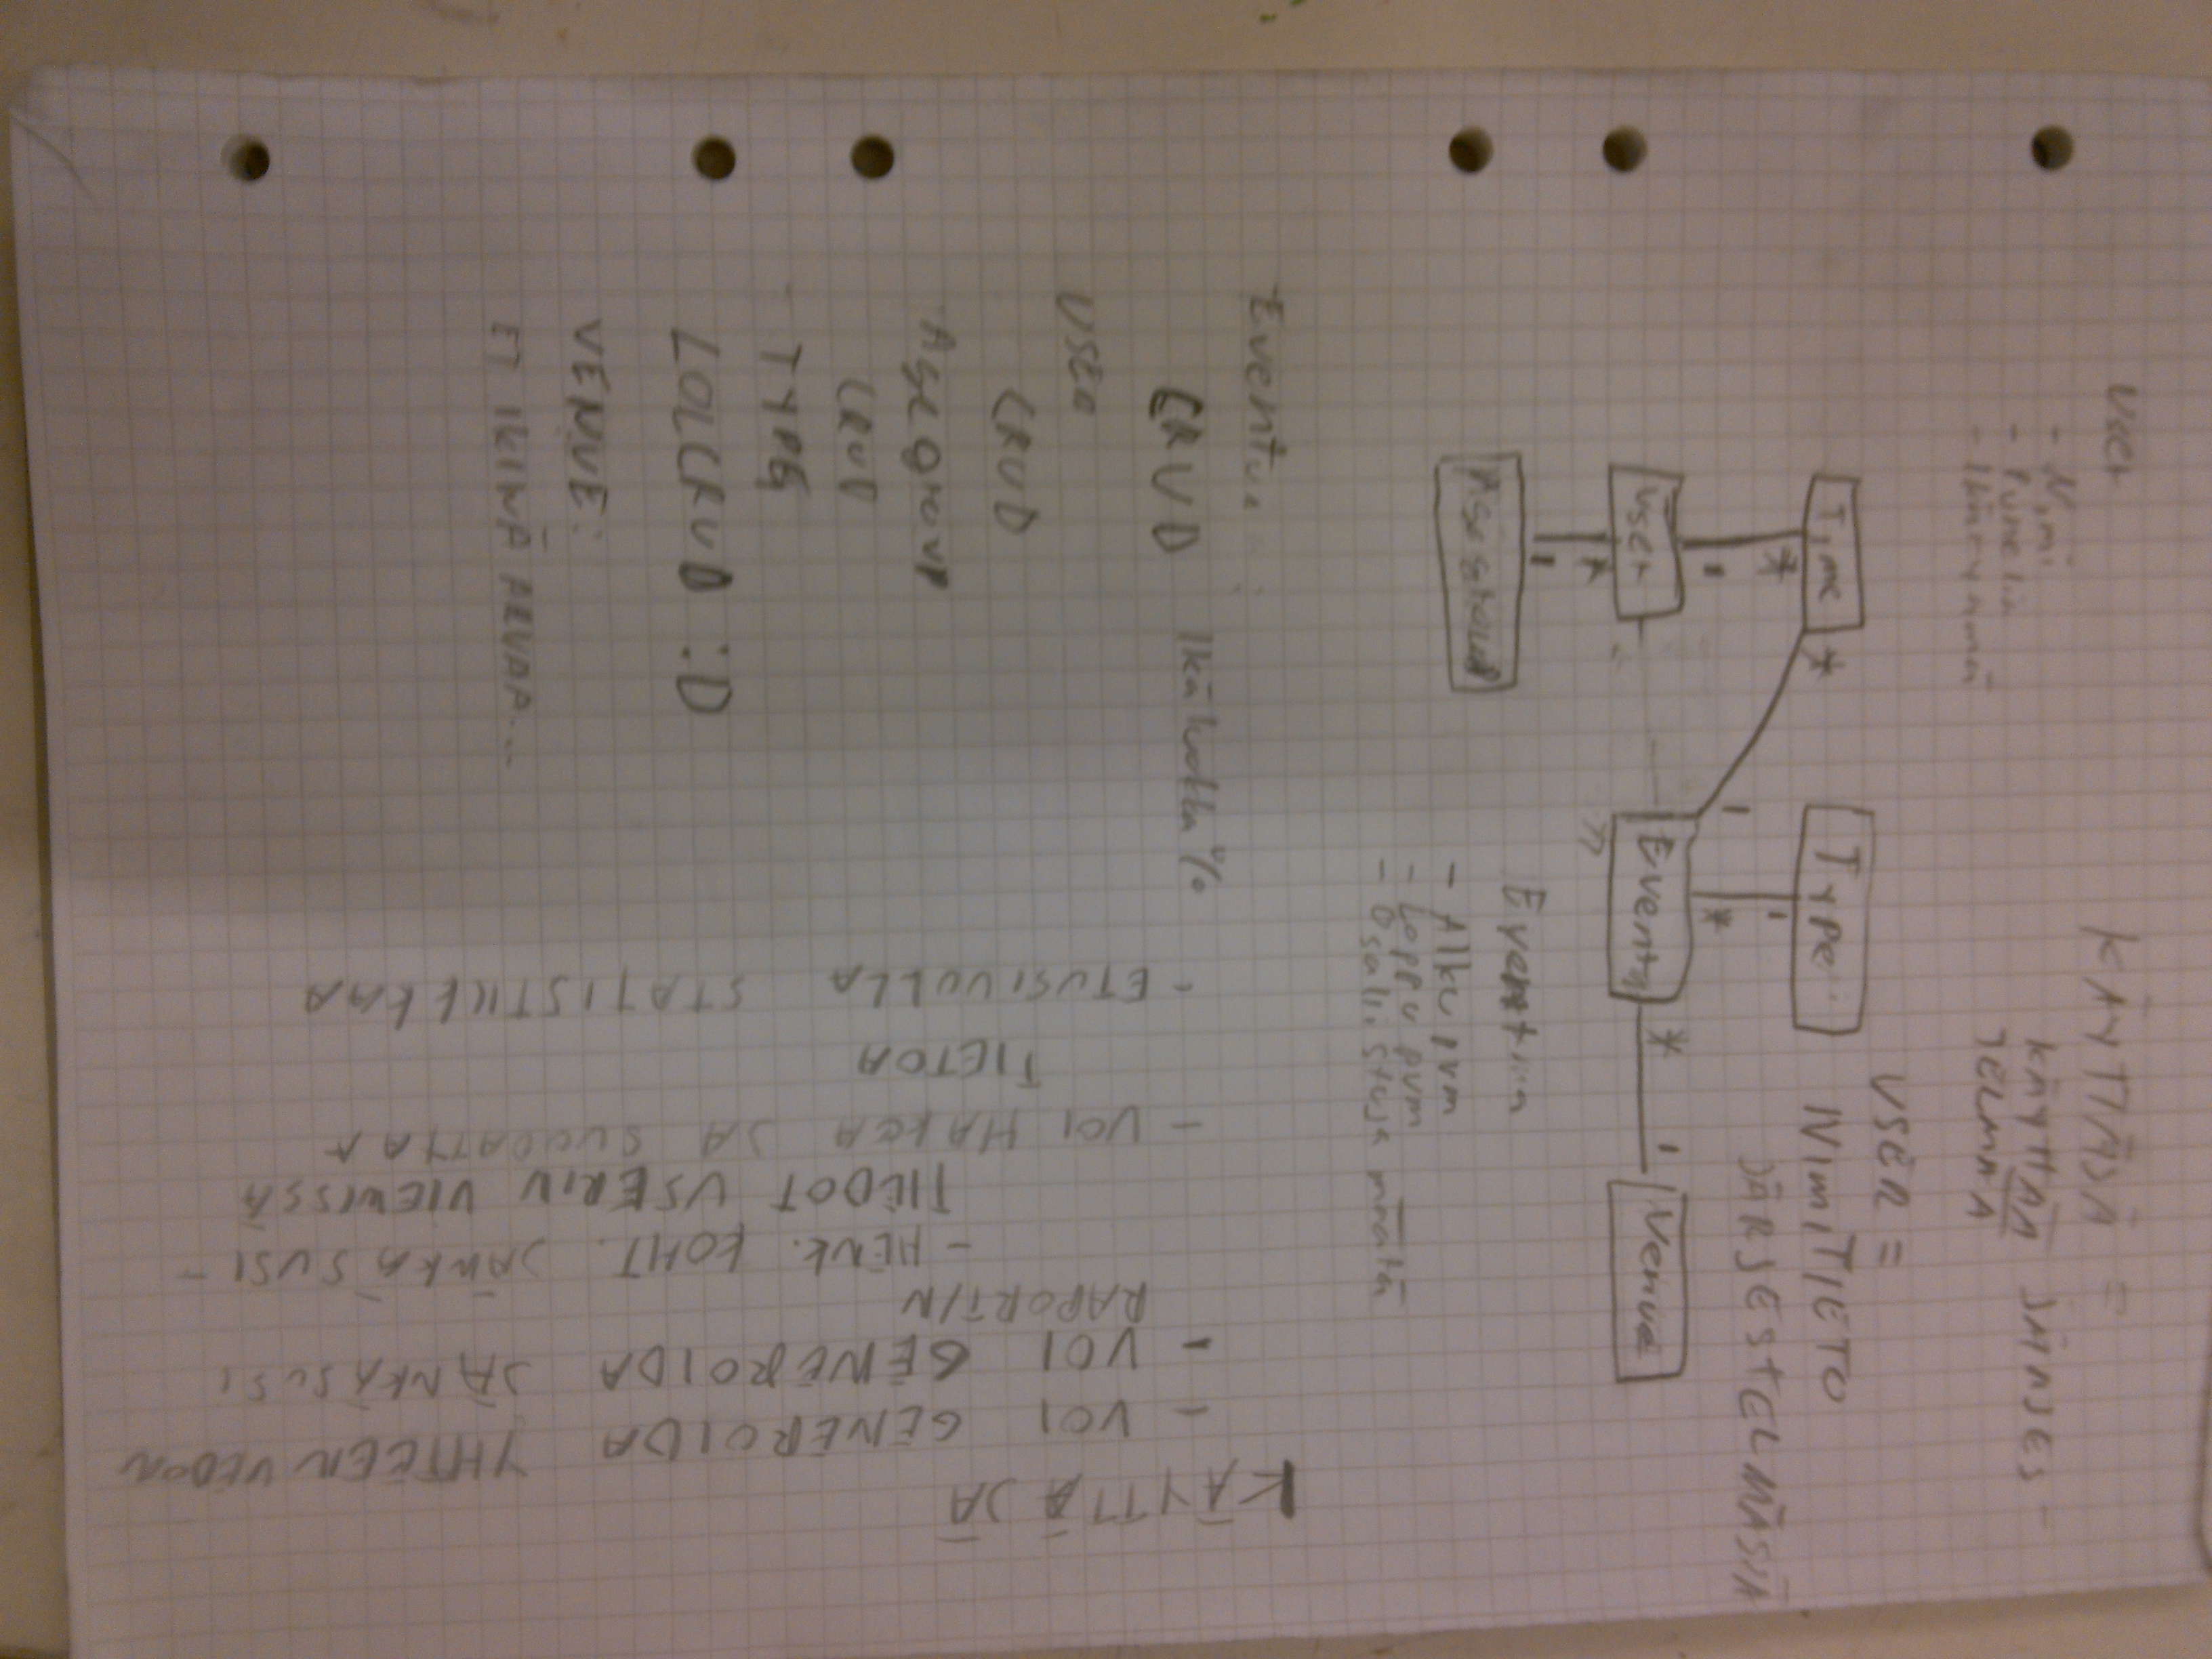 User
- Nimi
- Puhelin
- Ikäryhmä
KÄYTTÄJÄ =
KÄYTTÄÄ JÄRJES-
TELMÄÄ
USER =
NIMITIETO
JÄRJESTELMÄSSÄ
Time
*
*
1
User
*
1
Agegroup
Type
1
*
1
Events
*
1
Venue
Eventiin
- Alku pvm
- Loppu pvm
- Osallistuja määrä
Eventua
CRUD Ikäluokka %
USER
CRUD
Agegroup
CRUD
TYPE
LOLCRUD :D
VENUE:
ET IKINÄ ARVAA...
KÄYTTÄJÄ
- VOI GENEROIDA YHTEENVEDON
- VOI GENEROIDA JÄNKÄSUSI
RAPORTIN
- HENK. KOHT. JÄNKÄSUSI -
TIEDOT USERIN VIEWISSÄ
- VOI HAKEA JA SUODATTAA
TIETOA
- ETUSIVULLA STATISTIIKKAA